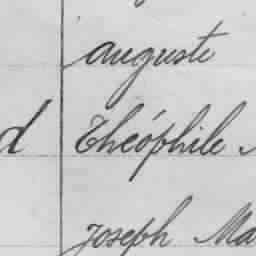 auguste
d Théophile
Joseph Ma